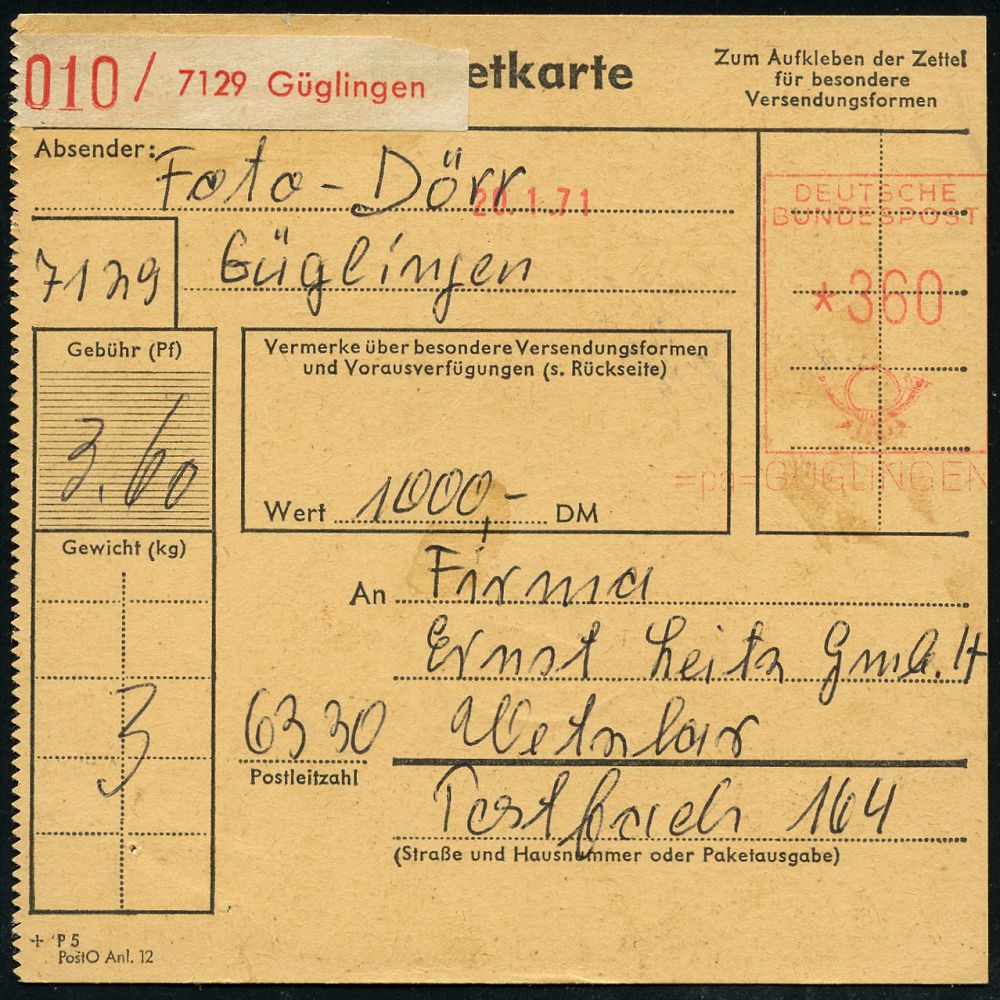 010 / 7129 Güglingen
etkarte
Zum Aufkleben der Zettel
für besondere
Versendungsformen
Absender: Foto - Dörr
20.1.71
7129 Güglingen
DEUTSCHE
BUNDESPOST
*360
=pa=GÜGLINGEN
Gebühr (Pf)
3.60
Vermerke über besondere Versendungsformen
und Vorausverfügungen (s. Rückseite)
Wert 1000,- DM
Gewicht (kg)
3
An Firma
Ernst Leitz GmbH
6330 Wetzlar
Postleitzahl
Postfach 164
(Straße und Hausnummer oder Paketausgabe)
+ P 5
PostO Anl. 12